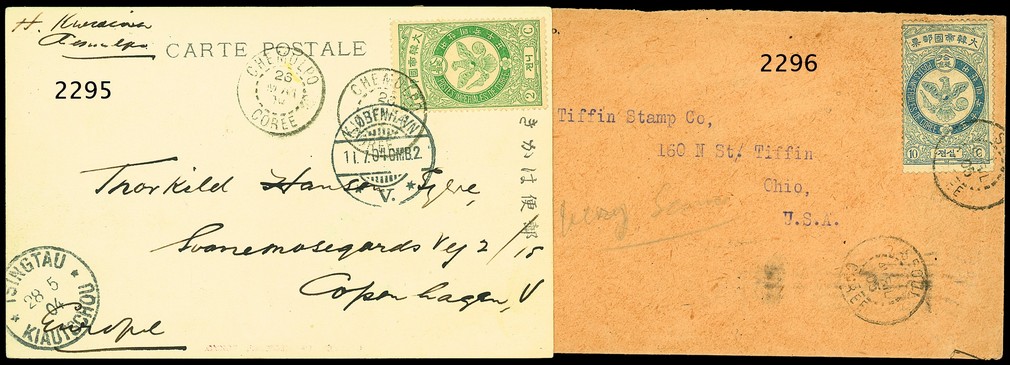 CARTE POSTALE
2295
CHEMULPO
COREE
CHEMULPO
KJØBENHAVN
11.7.04 OMB.2
V.
大韓帝國郵票
Thorkild Hansen
Svanemosegards Vej 2/15
Copenhagen, V
Europe
TSINGTAU
28 5
04
KIAUTSCHOU
便郵
2296
大韓帝國郵票
10
Tiffin Stamp Co,
160 N St/ Tiffin
Ohio,
U.S.A.
SEOUL
COREE